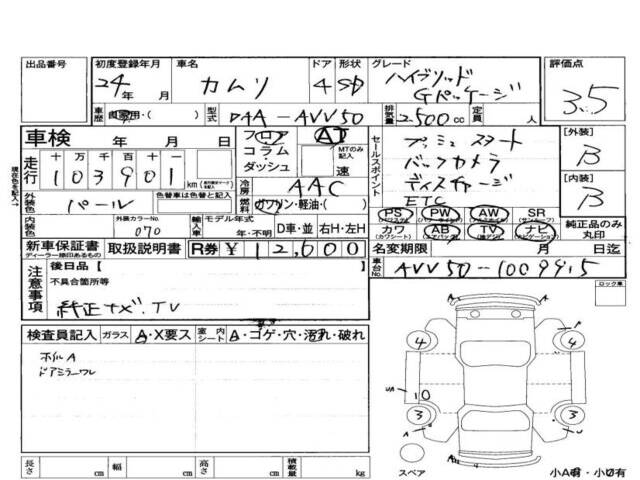 出品番号 初度登録年月 車名 ドア 形状 グレード 評価点
24年 月 カムリ 4 SD ハイブリッド
Gパッケージ 3.5
車歴 自家用・( ) 型式 DAA-AVV50 排気量 2500cc 定員 人
車検 年 月 日 シフト フロア AT
コラム・ MTのみ記入
ダッシュ 速
セールスポイント プッシュスタート
バックカメラ
ディスチャージ
ETC
[外装] B
[内装] B
現在色を記入→
走行 十 万 千 百 十 一
103901 km
冷房 AAC
外装色 色替車は色替前を記入
パール
燃料 ガソリン・軽油・( )
PS PW AW SR
カワ AB TV ナビ
純正品のみ丸印
内装色 外装カラーNo. 070 輸入車 モデル年式 年・不明 D車・並 右H・左H
新車保証書 取扱説明書 R券 ¥12,600 名変期限 月 日迄
ディーラー捺印あるもの
車台No. AVV50-1009915
注意事項 後日品【
不具合箇所等
純正ナビ.TV
ロック車
検査員記入 ガラス A・X要ス 室内シート A・コゲ・穴・汚れ・破れ
ホイルA
ドアミラーワレ
4 4
UA 10
3 3
A
スペア
小A有・小U有
長さ cm 幅 cm 高さ cm 積載量 kg